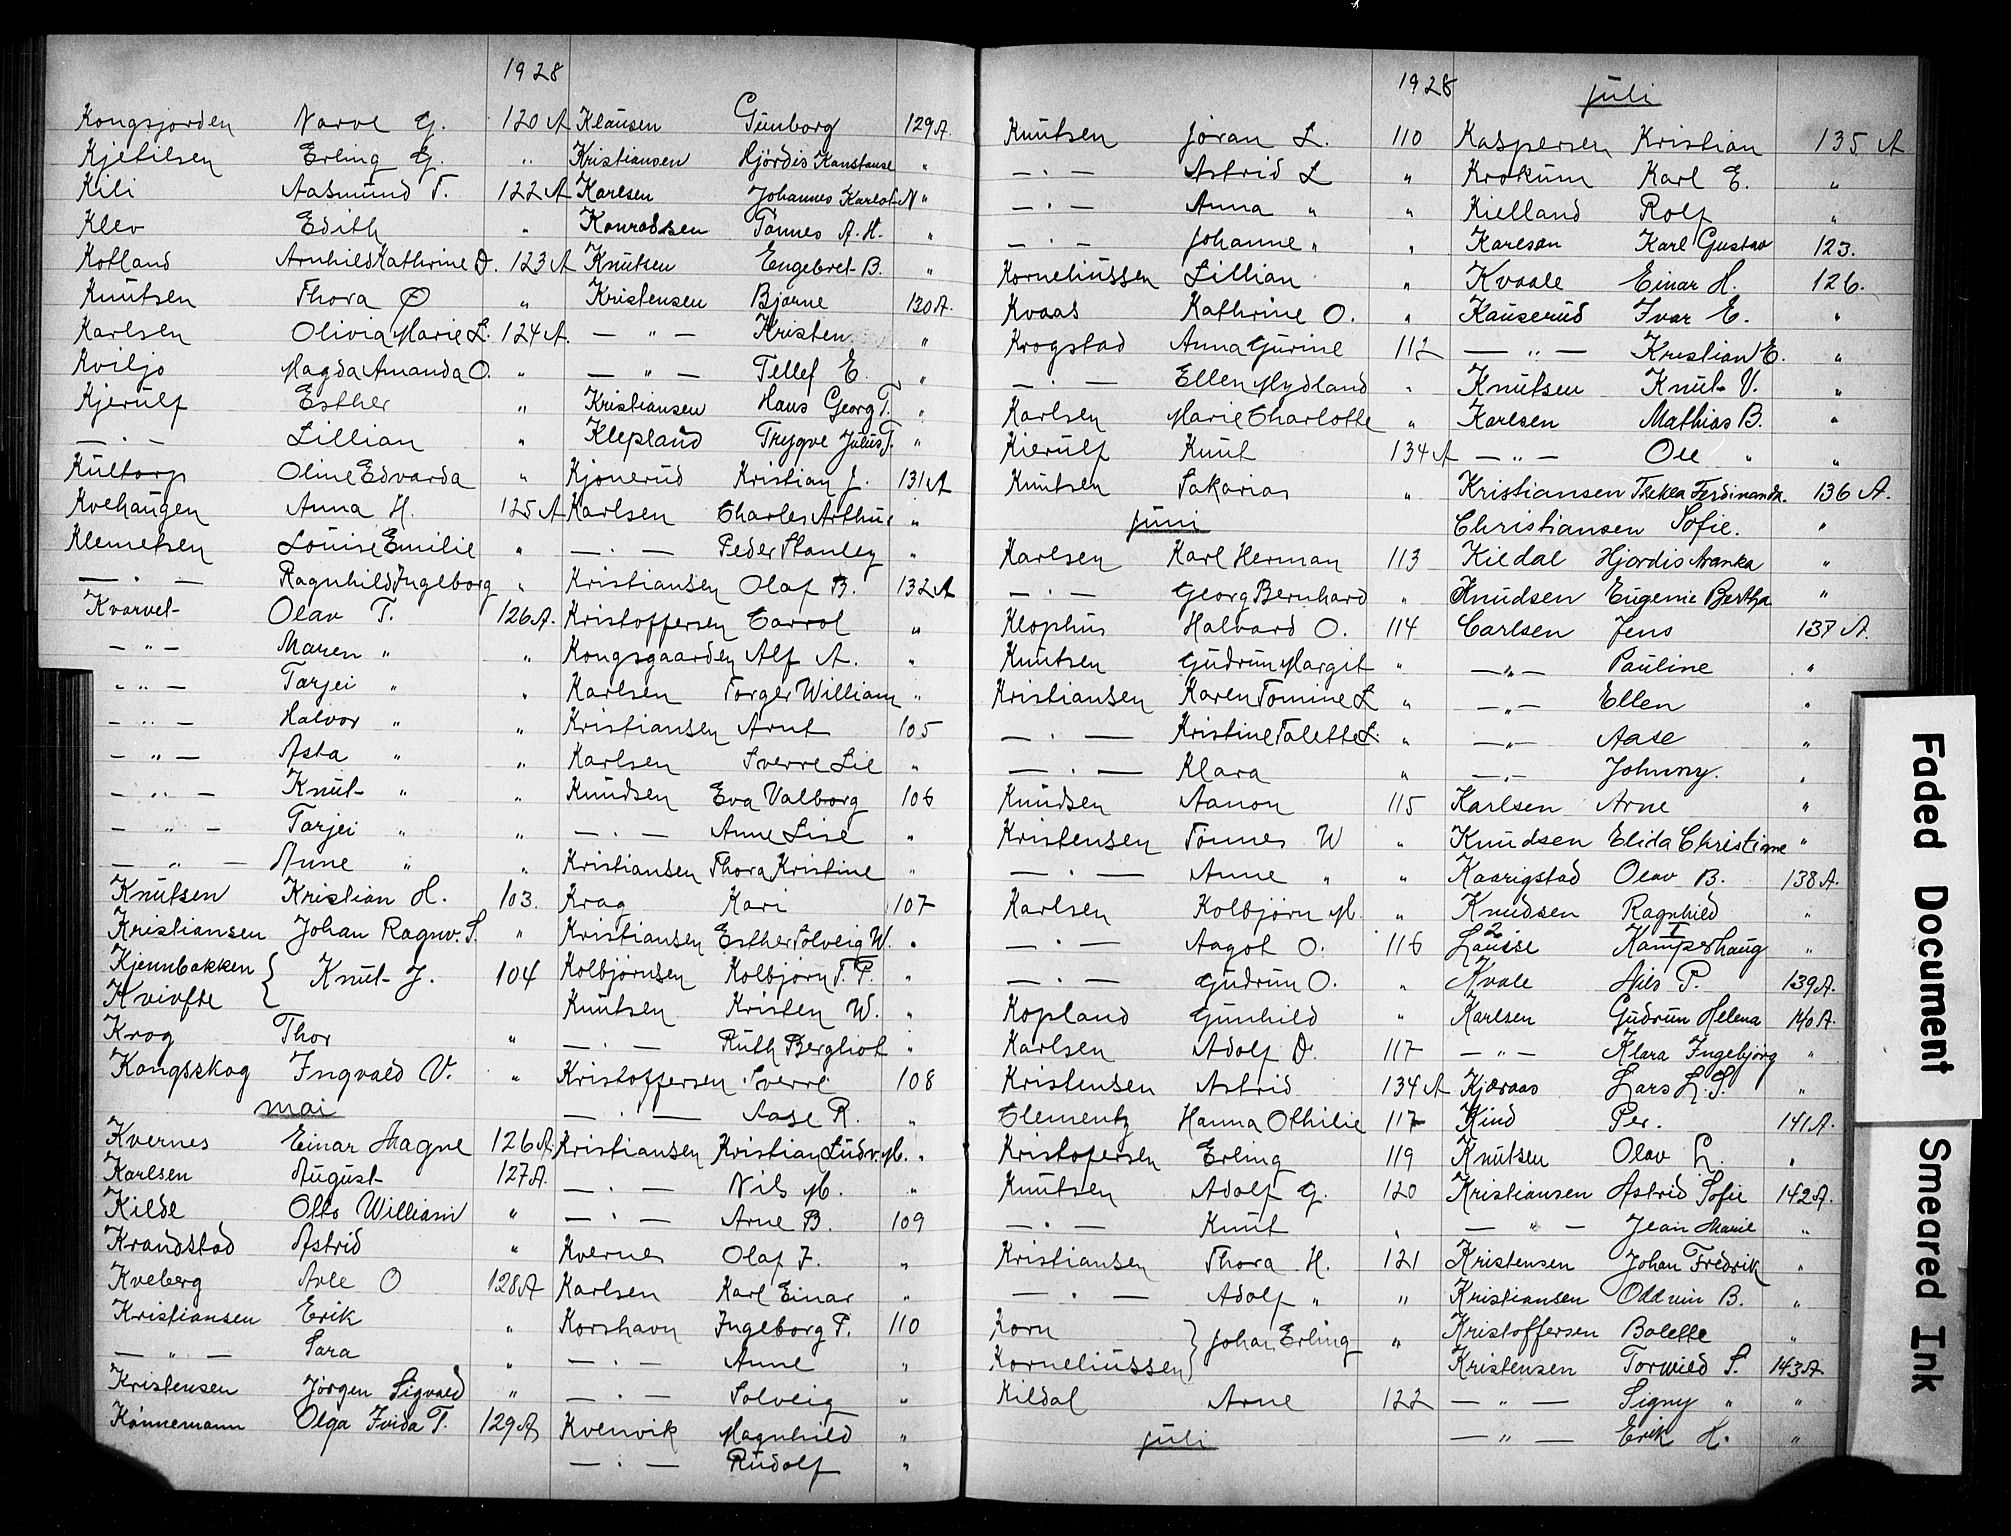 1928
Kongsjorden Narve G. 120 A
Kjetilsen Erling G. "
Kili Aasmund T. 122 A
Klev Edith "
Kotland Arnhild Kathrine D. 123 A
Knutsen Thora Ø "
Karlsen Olivia Marie L. 124 A.
Kviljo Magda Amanda O. "
Kjerulf Esther "
— . — Lillian "
Kultorp Oline Edvarda "
Kvehaugen Anna H. 125 A
Klemetsen Louise Emilie "
— . — Ragnhild Ingeborg "
Kvarvet Olav T. 126 A.
— " — Maren " "
— " — Tarjei " "
— " — Halvor " "
— " — Asta " "
— " — Knut " "
— " — Tarjei " "
— " — Anne " "
Knutsen Kristian H. 103.
Kristiansen Johan Ragnv. S. "
Kjennbakken } Knut J. 104
Kvivfte
Krog Thor "
Kongsskog Ingvald V. "
mai
Kvernes Einar Magne 126 A.
Karlsen August 127 A.
Kilde Otto William "
Krandstad Astrid "
Kveberg Avle O 128 A
Kristiansen Erik "
— " — Sara "
Kristensen Jörgen Sigvald "
Könnemann Olga Frida T. 129 A
Klausen Gunborg 129 A.
Kristiansen Hjördis Konstanse "
Karlsen Johannes Karlot N "
Konradsen Tönnes A. H. "
Knutsen Engebret B. "
Kristensen Bjarne 130 A.
— " — Kristen "
— " — Tellef E. "
Kristiansen Hans Georg T. "
Klepland Trygve Julius T. "
Kjonerud Kristian J. 131 A
Karlsen Charles Arthur "
— . — Peder Stanley "
Kristiansen Olaf B. 132 A
Kristoffersen Carrol "
Kongsgaarden Alf A. "
Karlsen Torger William "
Kristiansen Arnt 105
Karlsen Sverre Lie "
Knudsen Eva Valborg 106
— . — Anne Lise "
Kristiansen Thora Kristine "
Krag Kari 107
Kristiansen Esther Solveig W. "
Kolbjörnsen Kolbjörn T. P. "
Knutsen Kristen W. "
— . — Ruth Bergliot "
Kristoffersen Sverre 108
— . — Aase R. "
Kristiansen Kristian Ludv. M. "
— . — Nils M. "
— . — Arne B. 109
Kvernes Olaf J. "
Karlsen Karl Einar "
Korshavn Ingeborg P. 110
— . — Anne "
— . — Solveig "
Kvenvik Magnhild "
— . — Rudolf "
1928
Knutsen Jöran L. 110
— . — Astrid L "
— . — Anna " "
— . — Johanne " "
Korneliussen Lillian "
Kvaas Kathrine O. "
Krogstad Anna Gurine 112
— . — Ellen Mydland "
Karlsen Marie Charlotte "
Kierulf Knut 134 A
Knutsen Sakarias "
juni
Karlsen Karl Herman 113
— . — Georg Bernhard "
Klophus Halvard O. 114
Knutsen Gudrun Margit "
Kristiansen Karen Tomine L "
— . — Kristine Talette L. "
— . — Klara "
Knudsen Aanon 115
Kristensen Tönnes W "
— . — Anne " "
Karlsen Kolbjörn M. "
— . — Aagot O. 116
— . — Gudrun O. "
Kopland Gunhild "
Karlsen Adolf D. 117
Kristensen Astrid 134 A
Clementz Hanna Othilie 117
Kristofersen Erling 119
Knutsen Adolf G. 120
— . — Knut "
Kristiansen Thora H. 121
— . — Adolf " "
Korn } Johan Erling "
Korneliussen
Kildal Arne 122
juli
juli
Kaspersen Kristian 135 A
Krokum Karl E. "
Kielland Rolf "
Karlsen Karl Gustav 123.
Kvaale Einar H. 126.
Kauserud Ivar E. "
— " — Kristian E. "
Knutsen Knut V. "
Karlsen Mathias B. "
— " — Ole " "
Kristiansen Thekla Ferdinanda 136 A.
Christiansen Sofie. "
Kildal Hjordis Aranka "
Knudsen Eugenie Bertha "
Carlsen Jens 137 A.
— " — Pauline "
— " — Ellen "
— " — Aase "
— " — Johnny. "
Karlsen Arne "
Knudsen Elida Christine "
Kaarigstad Olav B. 138 A.
Knudsen Ragnhild "
2 1
Louise Kamperhaug "
Kvale Nils P. 139 A.
Karlsen Gudrun Helena 140 A.
— " — Klara Ingebjörg "
Kjæraas Lars L. S. "
Kind Per. 141 A.
Knutsen Olav L. "
Kristiansen Astrid Sofie 142 A.
— " — Jean Marie "
Kristensen Johan Fredrik "
Kristiansen Oddvin B. "
Kristoffersen Bolette "
Kristensen Torvild S. 143 A.
— " — Signy " "
— " — Erik H. "
Faded Document
Smeared Ink